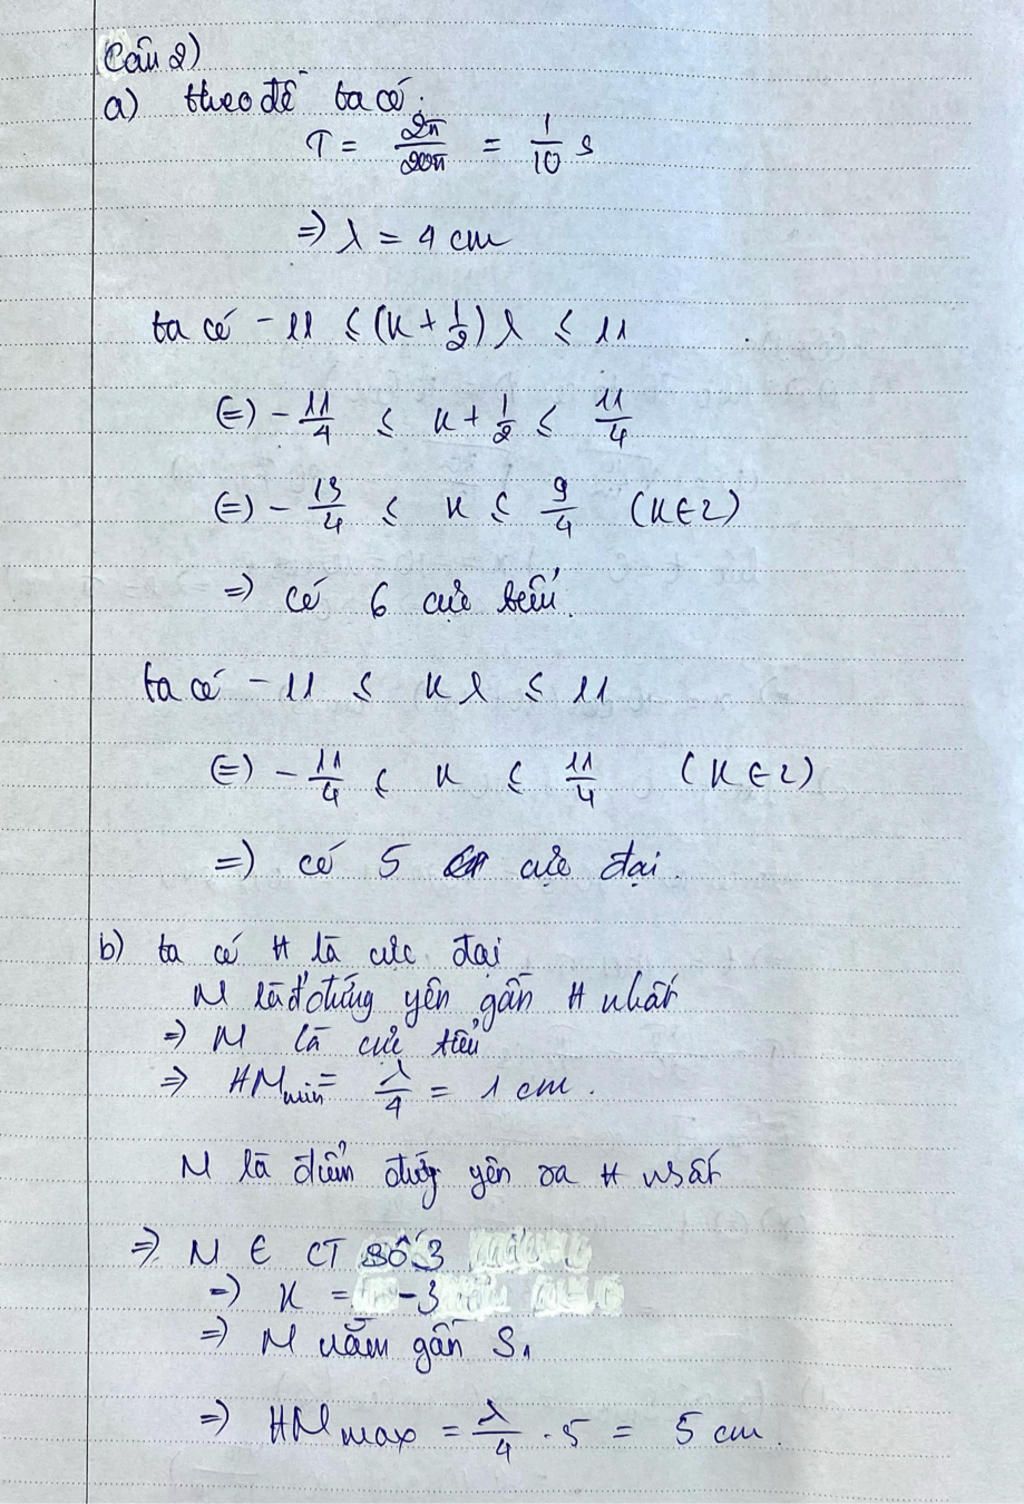 Câu 2)
a) theo đề ta có:
T = 2π/20π = 1/10 s
=> λ = 4 cm
ta có -11 ≤ (k + 1/2) λ ≤ 11
(=) - 11/4 ≤ k + 1/2 ≤ 11/4
(=) - 13/4 ≤ k ≤ 9/4 (k ∈ Z)
=> có 6 cực tiểu.
ta có -11 ≤ k λ ≤ 11
(=) - 11/4 ≤ k ≤ 11/4 (k ∈ Z)
=) có 5 cực đại.
b) ta có H là cực đại
M là đ' đứng yên gần H nhất
=> M là cực tiểu
=> HM min = λ/4 = 1 cm.
M là điểm đứng yên xa H nhất
=> M ∈ CT số 3
=) k = -3
=> M nằm gần S₁
=> HM max = λ/4 . 5 = 5 cm.